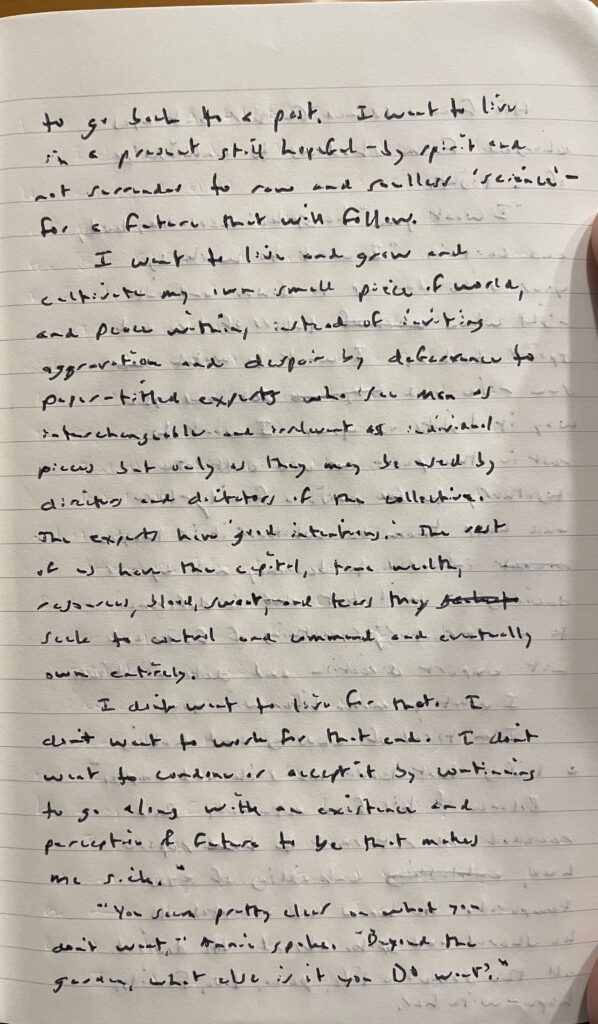 to go back to a past. I want to live
in a present still hopeful - by spirit and
not surrender to raw and soulless 'science' -
for a future that will follow.
I want to live and grow and
cultivate my own small piece of world,
and peace within, instead of inviting
aggravation and despair by deference to
paper-titled experts who see men as
interchangeable and irrelevant as individual
pieces but only as they may be used by
directors and dictators of the collective.
The experts have 'good intentions.' The rest
of us have the capital, true wealth,
resources, blood, sweat, and tears they
seek to control and command and eventually
own entirely.
I don't want to live for that. I
don't want to work for that end. I don't
want to condone or accept it by continuing
to go along with an existence and
perception of future to be that makes
me sick."
"You seem pretty clear on what you
don't want," Annie spoke. "Beyond the
garden, what else is it you DO want?"